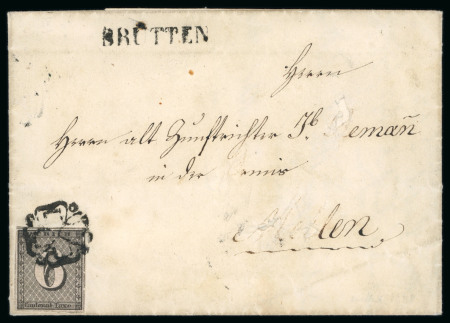 BRÜTTEN
Herrn
Herrn alt Zunftrichter Jb. emañ
in der
Meilen
6
Cantonal-Taxe